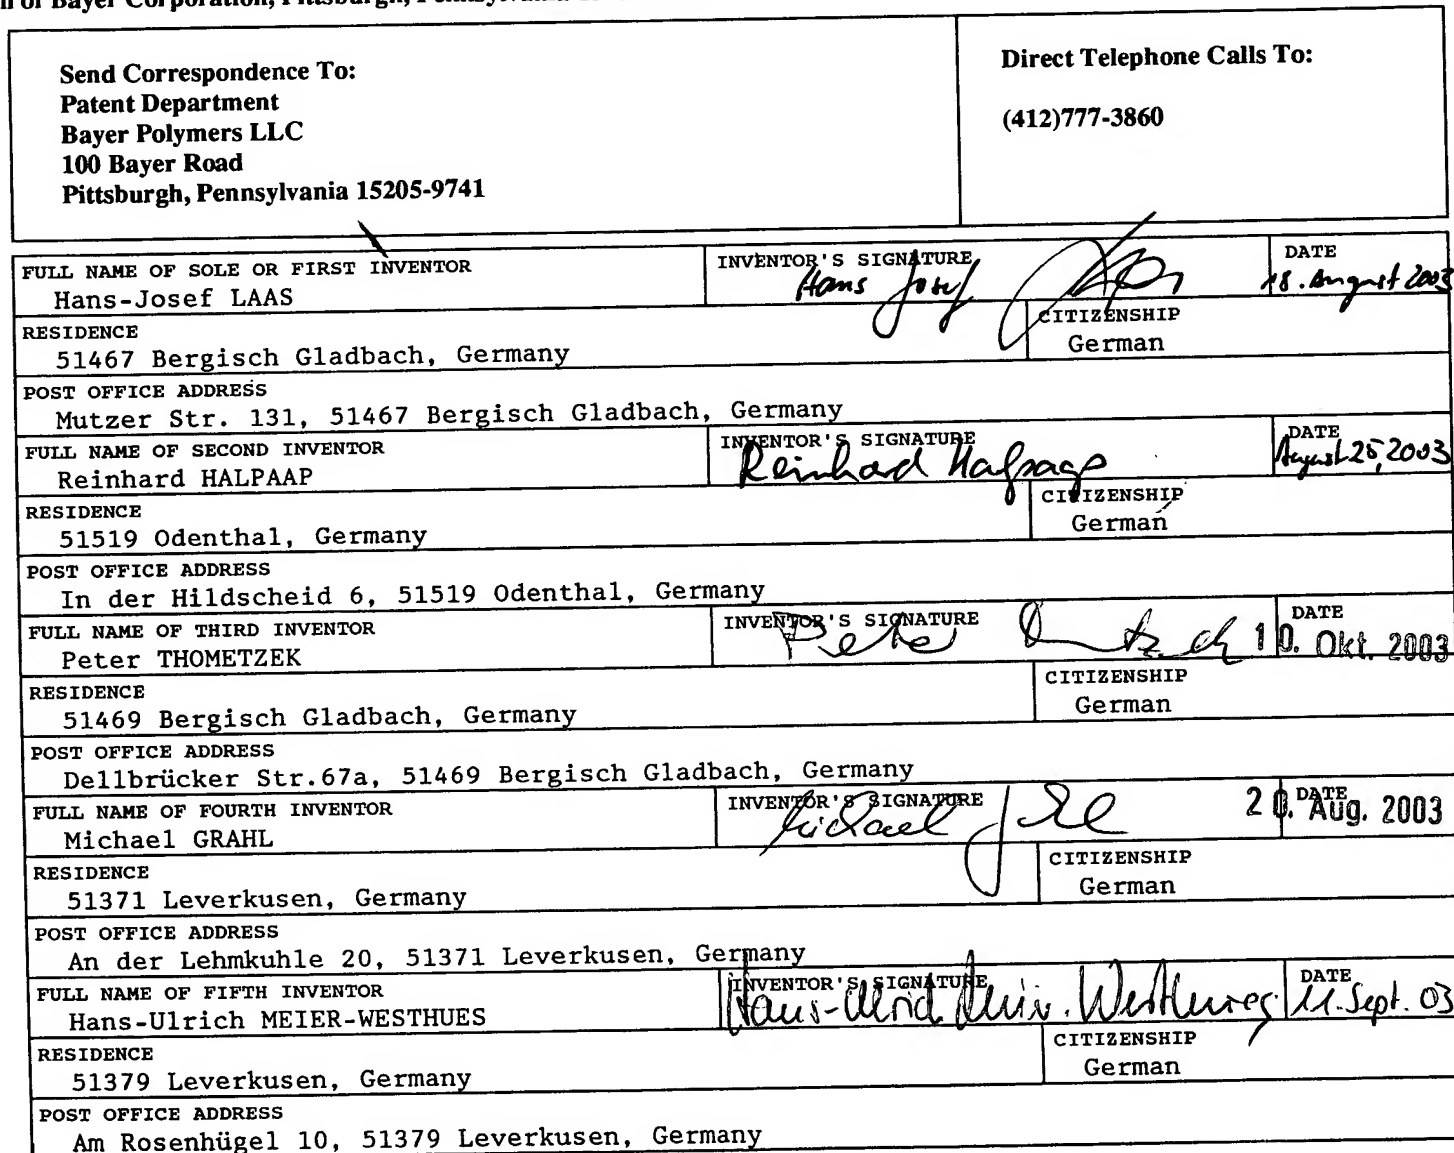 n of Bayer Corporation, Pittsburgh, Pennsylvania
Send Correspondence To:
Patent Department
Bayer Polymers LLC
100 Bayer Road
Pittsburgh, Pennsylvania 15205-9741
Direct Telephone Calls To:
(412)777-3860
FULL NAME OF SOLE OR FIRST INVENTOR
Hans-Josef LAAS
INVENTOR'S SIGNATURE
Hans Josef
DATE
18. August 2003
RESIDENCE
51467 Bergisch Gladbach, Germany
CITIZENSHIP
German
POST OFFICE ADDRESS
Mutzer Str. 131, 51467 Bergisch Gladbach, Germany
FULL NAME OF SECOND INVENTOR
Reinhard HALPAAP
INVENTOR'S SIGNATURE
Reinhard Halpaap
DATE
August 25, 2003
RESIDENCE
51519 Odenthal, Germany
CITIZENSHIP
German
POST OFFICE ADDRESS
In der Hildscheid 6, 51519 Odenthal, Germany
FULL NAME OF THIRD INVENTOR
Peter THOMETZEK
INVENTOR'S SIGNATURE
Peter
DATE
10. Okt. 2003
RESIDENCE
51469 Bergisch Gladbach, Germany
CITIZENSHIP
German
POST OFFICE ADDRESS
Dellbrücker Str.67a, 51469 Bergisch Gladbach, Germany
FULL NAME OF FOURTH INVENTOR
Michael GRAHL
INVENTOR'S SIGNATURE
Michael
DATE
20. Aug. 2003
RESIDENCE
51371 Leverkusen, Germany
CITIZENSHIP
German
POST OFFICE ADDRESS
An der Lehmkuhle 20, 51371 Leverkusen, Germany
FULL NAME OF FIFTH INVENTOR
Hans-Ulrich MEIER-WESTHUES
INVENTOR'S SIGNATURE
Hans-Ulrich Meier-Westhues
DATE
11. Sept. 03
RESIDENCE
51379 Leverkusen, Germany
CITIZENSHIP
German
POST OFFICE ADDRESS
Am Rosenhügel 10, 51379 Leverkusen, Germany